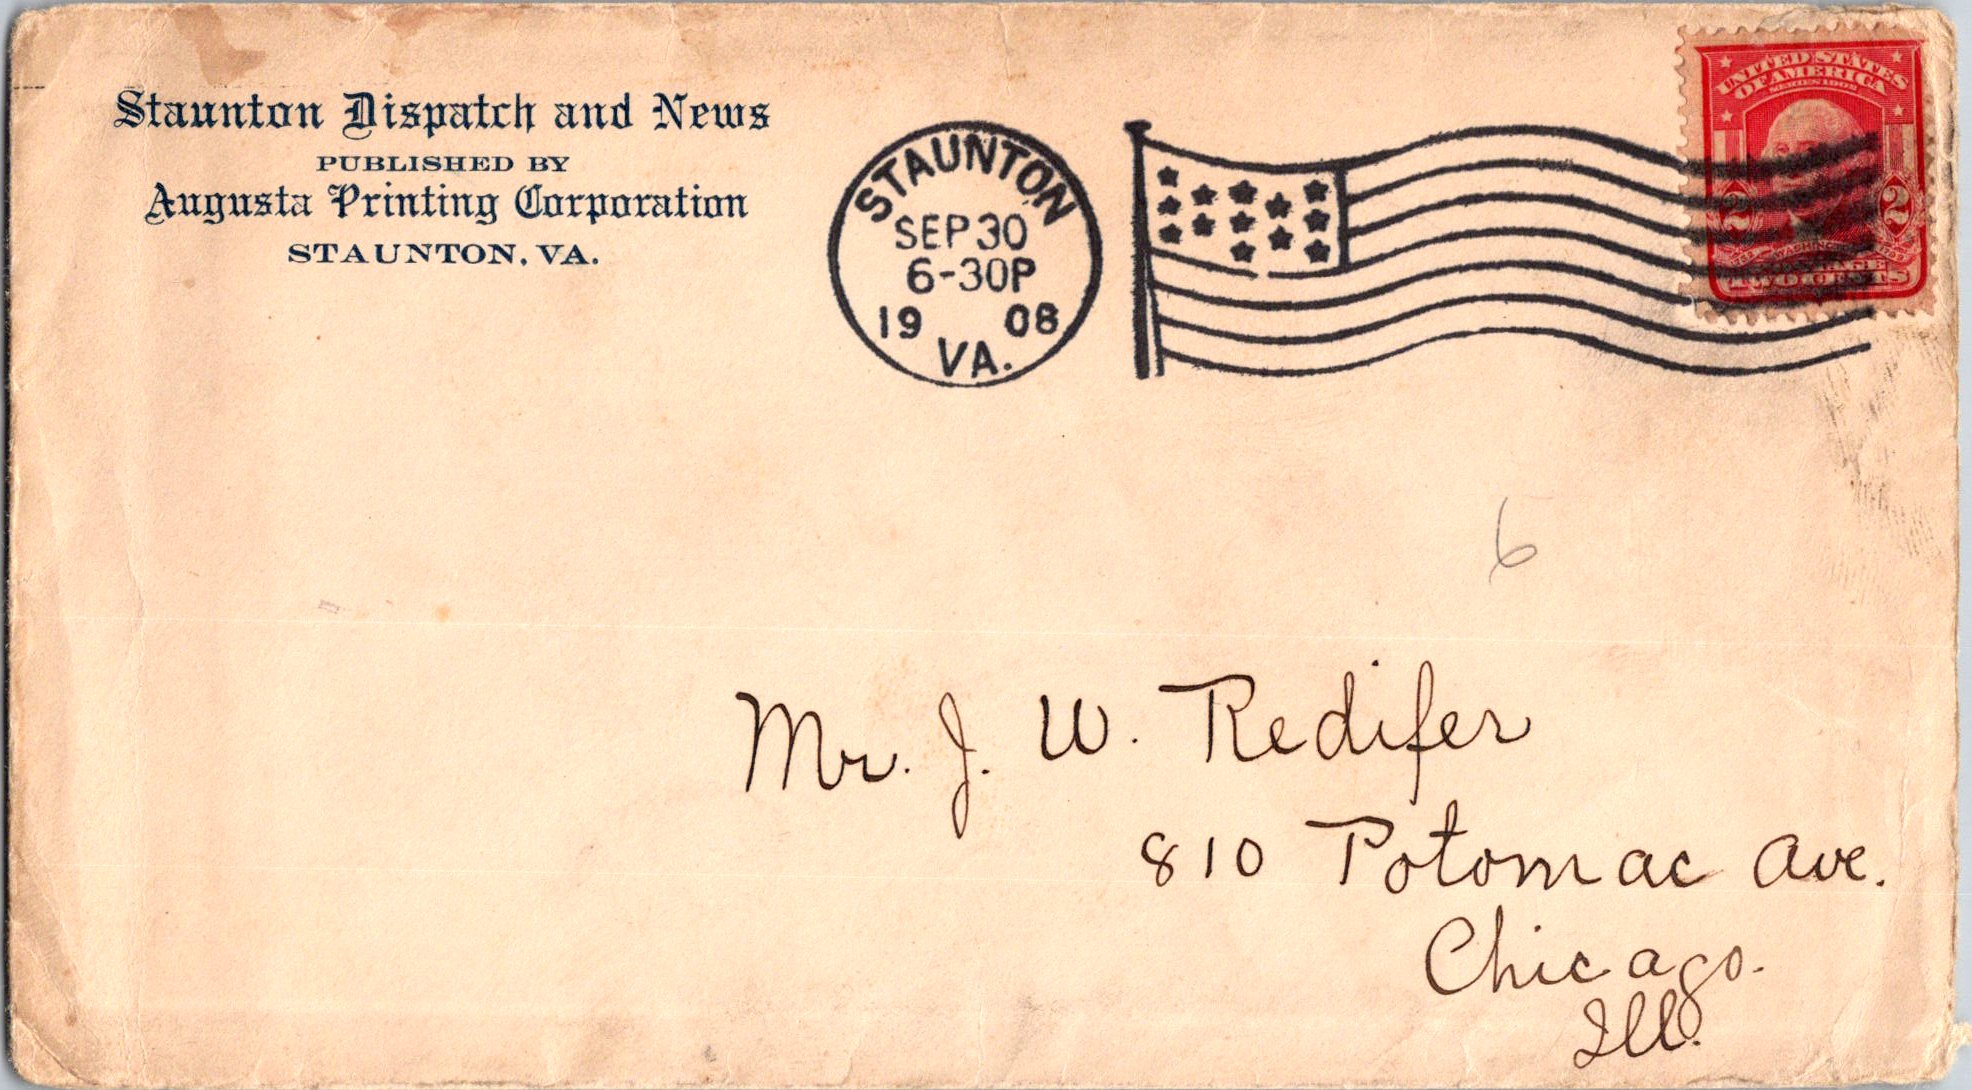 Staunton Dispatch and News
PUBLISHED BY
Augusta Printing Corporation
STAUNTON, VA.
STAUNTON
SEP 30
6-30P
19 08
VA.
UNITED STATES
OF AMERICA
SERIES 1902
2 2
TWO CENTS
6
Mr. J. W. Redifer
810 Potomac Ave.
Chicago.
Ill.